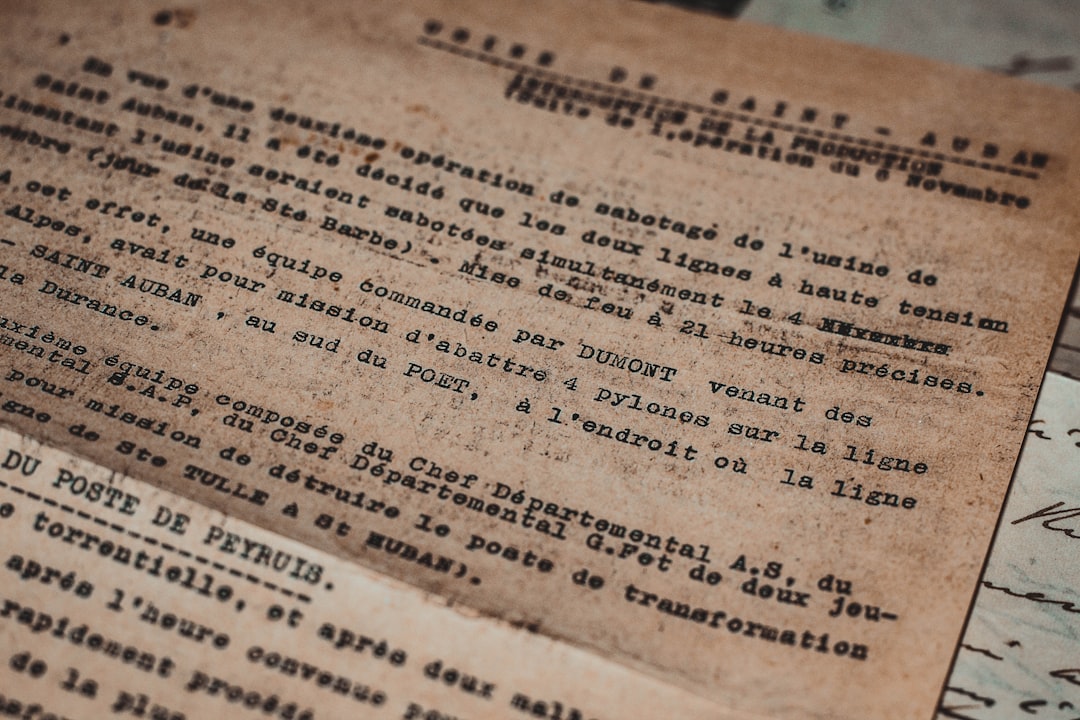 U S I N E   D E   S A I N T - A U B A N
INTERRUPTION DE LA PRODUCTION
(Suite de l'opération du 6 Novembre
En vue d'une deuxième opération de sabotage de l'usine de
Saint Auban, il a été décidé que les deux lignes à haute tension
imentant l'usine seraient sabotées simultanément le 4
embre (jour de la Ste Barbe). Mise de feu à 21 heures précises.
A cet effet, une équipe commandée par DUMONT venant des
Alpes, avait pour mission d'abattre 4 pylones sur la ligne
- SAINT AUBAN , au sud du POET, à l'endroit où la ligne
la Durance.
uxième équipe composée du Chef Départemental A.S. du
mental S.A.P. du Chef Départemental G.F et de deux jou-
pour mission de détruire le poste de transformation
igne de Ste TULLE à St AUBAN).
DU POSTE DE PEYRUIS.
e torrentielle, et après deux
aprés l'heure convenue
rapidement procédé
de la plus